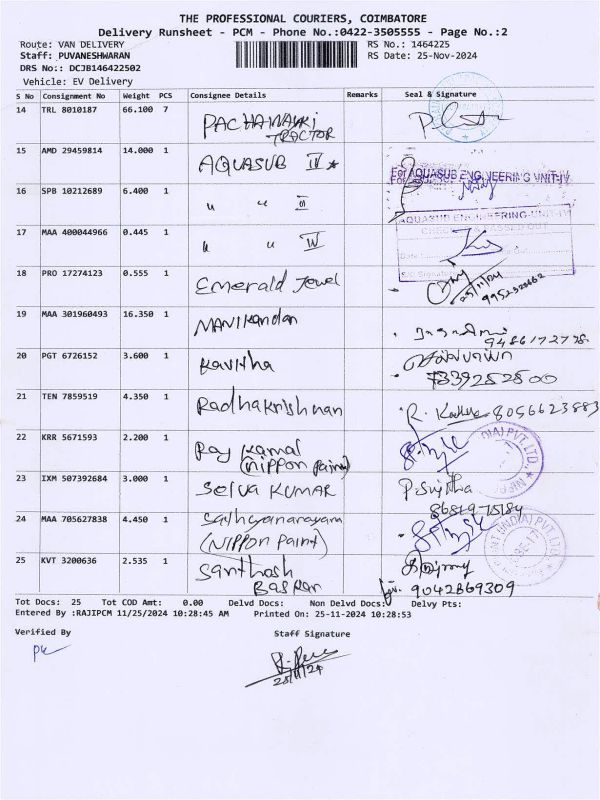 THE PROFESSIONAL COURIERS, COIMBATORE
Delivery Runsheet - PCM - Phone No.:0422-3505555 - Page No.:2
Route: VAN DELIVERY RS No.: 1464225
Staff: PUVANESHWARAN RS Date: 25-Nov-2024
DRS No.: DCJB146422502
Vehicle: EV Delivery
S No Consignment No Weight PCS Consignee Details Remarks Seal & Signature
14 TRL 8010187 66.100 7 PACHANAYKI TRACTOR
15 AMD 29459814 14.000 1 AQUASUB IV *
For AQUASUB ENGINEERING UNIT-IV
16 SPB 10212689 6.400 1 " " III
AQUASUB ENGINEERING-UNIT-IV
17 MAA 400044966 0.445 1 " " IV
18 PRO 17274123 0.555 1 Emerald Jewel 25/11/24
19 MAA 301960493 16.350 1 MANIKANDAN 9486172778
20 PGT 6726152 3.600 1 Kavitha
7339252800
21 TEN 7859519 4.350 1 Radhakrishnan R. 8056623883
22 KRR 5671593 2.200 1 Raj Kamal
(Nippon Paint)
23 IXM 507392684 3.000 1 SELVA KUMAR P. Sujitha
24 MAA 705627838 4.450 1 Sathyanarayanan
(NIPPON PAINT)
25 KVT 3200636 2.535 1 Santhosh
Baskan 9042869309
Tot Docs: 25 Tot COD Amt: 0.00 Delvd Docs: Non Delvd Docs: Delvy Pts:
Entered By :RAJIPCM 11/25/2024 10:28:45 AM Printed On: 25-11-2024 10:28:53
Verified By Staff Signature
25/11/24